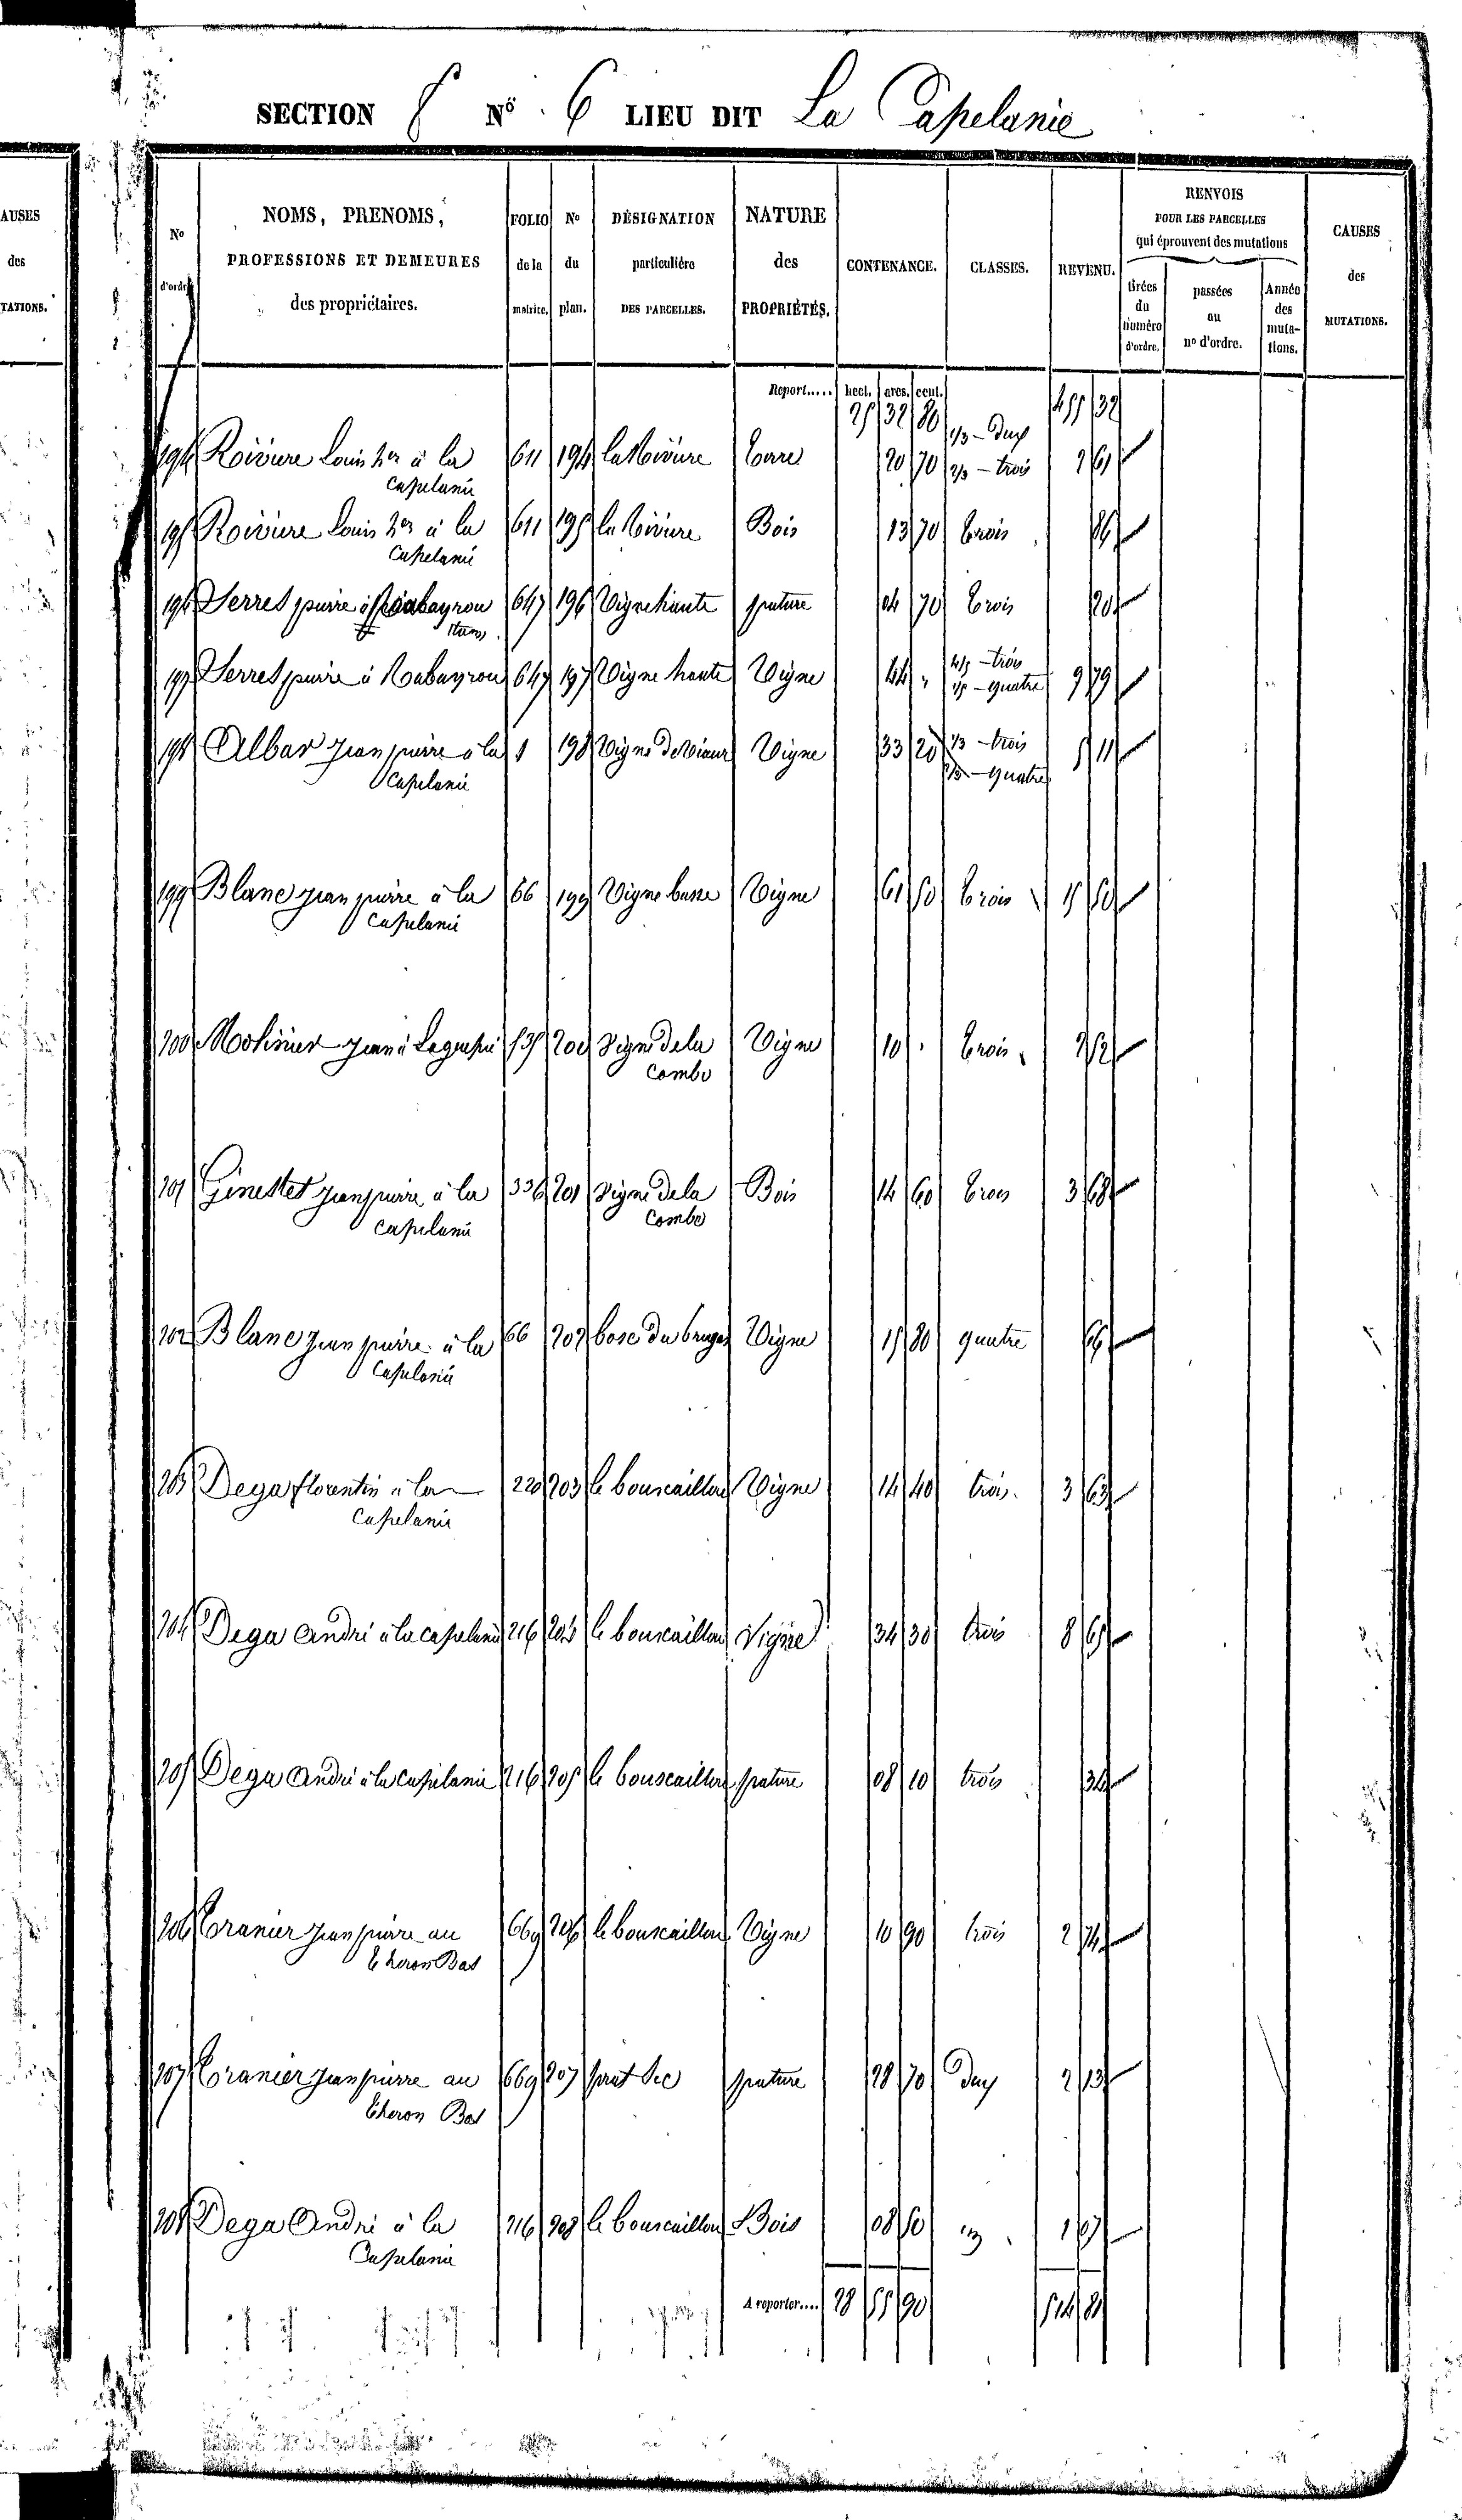 SECTION N° 6 LIEU DIT La Capelanie
AUSES
des
TATIONS.
N°
d'ordre
NOMS, PRENOMS,
PROFESSIONS ET DEMEURES
des propriétaires.
FOLIO
de la
matrice.
N°
du
plan.
DÉSIGNATION
particulière
DES PARCELLES.
NATURE
des
PROPRIÉTÉS.
CONTENANCE.
CLASSES.
REVENU.
RENVOIS
POUR LES PARCELLES
qui éprouvent des mutations
tirées
du
numéro
d'ordre.
passées
au
n° d'ordre.
Année
des
muta-
tions.
CAUSES
des
MUTATIONS.
Report..... hect. ares. cent.
25 32 80
194 Louis à la 611 194 20 70 2/3 - trois
Capelanie
195 Louis à la 611 195 Bois 13 70 trois
Capelanie
196 Serres pierre à 647 196 Vigne haute pature 04 70 trois
197 Serres pierre à Rabayrou 647 197 Vigne haute Vigne 44 " 4/5 - trois 9 79
1/5 - quatre
198 Albar jean pierre à la 1 198 Vigne Vigne 33 20 1/3 - trois 5 11
2/3 - quatre
Capelanie
199 Blanc jean pierre à la 66 199 Vigne basse Vigne 61 50 trois 15 50
Capelanie
200 Molinier jean à 200 Vigne de la Vigne 10 . trois 2 52
Combe
201 Ginestet jean pierre à la 336 201 Vigne de la Bois 14 60 trois 3 68
Capelanie Combe
202 Blanc jean pierre à la 66 202 Vigne 15 80 quatre
Capelanie
203 Dega florentin à la 220 203 le bouscaillou Vigne 14 40 trois 3 63
Capelanie
204 Dega andré à la capelanie 216 204 le bouscaillou Vigne 34 30 trois 8 65
205 Dega andré à la capelanie 216 205 le bouscaillou pature 08 10 trois 34
206 jean pierre au 669 206 le bouscaillou Vigne 10 90 trois 2 74
Theron Bas
207 jean pierre au 669 207 prat sec pature 28 70 2 13
Theron Bas
208 Dega André à la 216 208 le bouscaillou Bois 08 50 1 07
Capelanie
A reporter.... 28 55 90